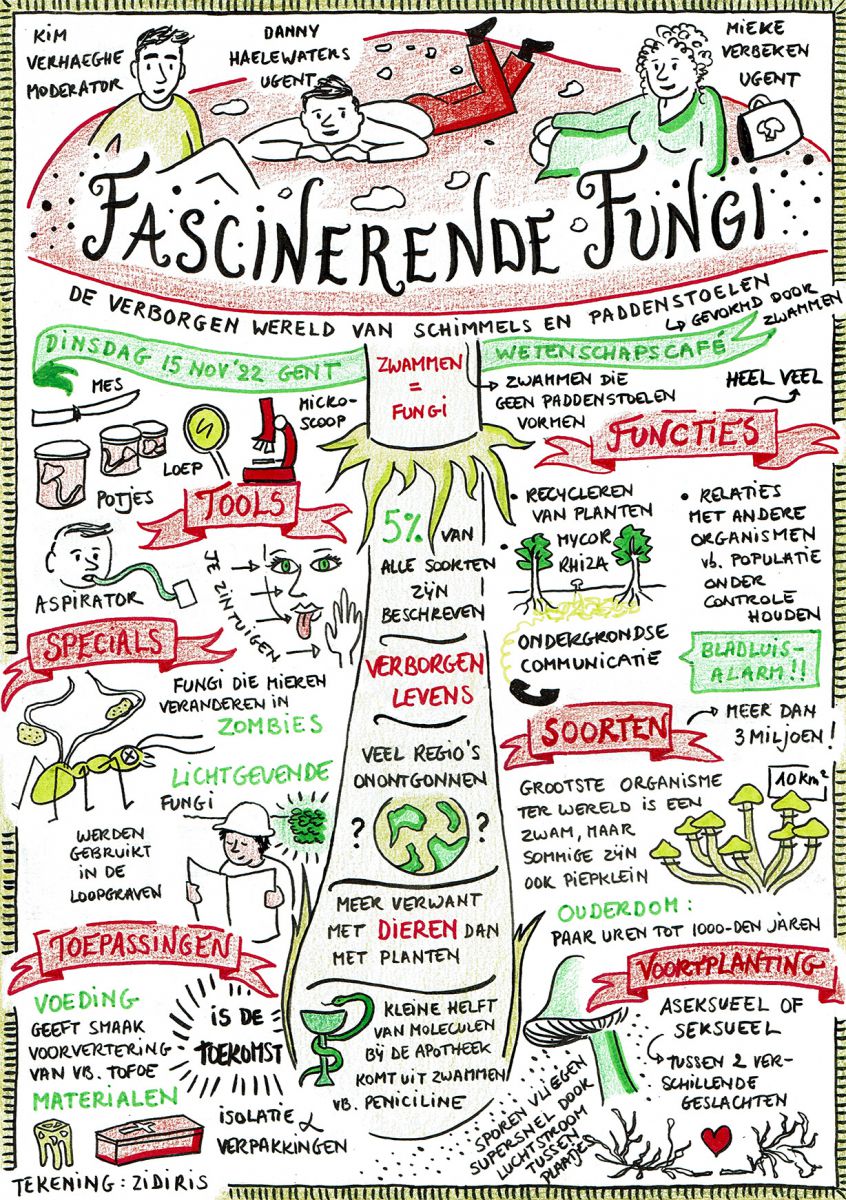 KIM
VERHAEGHE
MODERATOR
DANNY
HAELEWATERS
UGENT
MIEKE
VERBEKEN
UGENT
FASCINERENDE FUNGI
DE VERBORGEN WERELD VAN SCHIMMELS EN PADDENSTOELEN
GEVORMD DOOR
ZWAMMEN
DINSDAG 15 NOV '22 GENT
ZWAMMEN
=
FUNGI
WETENSCHAPSCAFÉ
ZWAMMEN DIE
GEEN PADDENSTOELEN
VORMEN
HEEL VEEL
FUNCTIES
MES
MICRO-
SCOOP
LOEP
POTJES
TOOLS
ASPIRATOR
JE ZINTUIGEN
5% VAN
ALLE SOORTEN
ZIJN
BESCHREVEN
• RECYCLEREN
VAN PLANTEN
• MYCOR
RHIZA
ONDERGRONDSE
COMMUNICATIE
• RELATIES
MET ANDERE
ORGANISMEN
VB. POPULATIE
ONDER
CONTROLE
HOUDEN
BLADLUIS-
ALARM!!
SPECIALS
FUNGI DIE MIEREN
VERANDEREN IN
ZOMBIES
LICHTGEVENDE
FUNGI
WERDEN
GEBRUIKT
IN DE
LOOPGRAVEN
VERBORGEN
LEVENS
VEEL REGIO'S
ONONTGONNEN
? ?
MEER VERWANT
MET DIEREN DAN
MET PLANTEN
KLEINE HELFT
VAN MOLECULEN
BIJ DE APOTHEEK
KOMT UIT ZWAMMEN
VB. PENICILINE
SOORTEN
MEER DAN
3 MILJOEN!
GROOTSTE ORGANISME
TER WERELD IS EEN
ZWAM, MAAR
SOMMIGE ZIJN
OOK PIEPKLEIN
10 KM²
OUDERDOM:
PAAR UREN TOT 1000-DEN JAREN
TOEPASSINGEN
VOEDING
GEEFT SMAAK
VOORVERTERING
VAN VB. TOFOE
IS DE
TOEKOMST
MATERIALEN
ISOLATIE &
VERPAKKINGEN
VOORTPLANTING
ASEKSUEEL OF
SEKSUEEL
TUSSEN 2 VER-
SCHILLENDE
GESLACHTEN
SPOREN VLIEGEN
SUPERSNEL DOOR
LUCHTSTROOM
TUSSEN
PLAATJES
TEKENING: ZIDIRIS